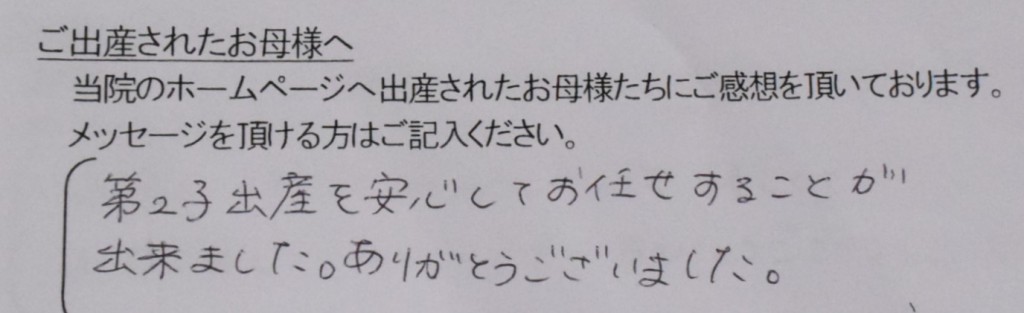 ご出産されたお母様へ
当院のホームページへ出産されたお母様たちにご感想を頂いております。
メッセージを頂ける方はご記入ください。
第2子出産を安心してお任せすることが
出来ました。ありがとうございました。